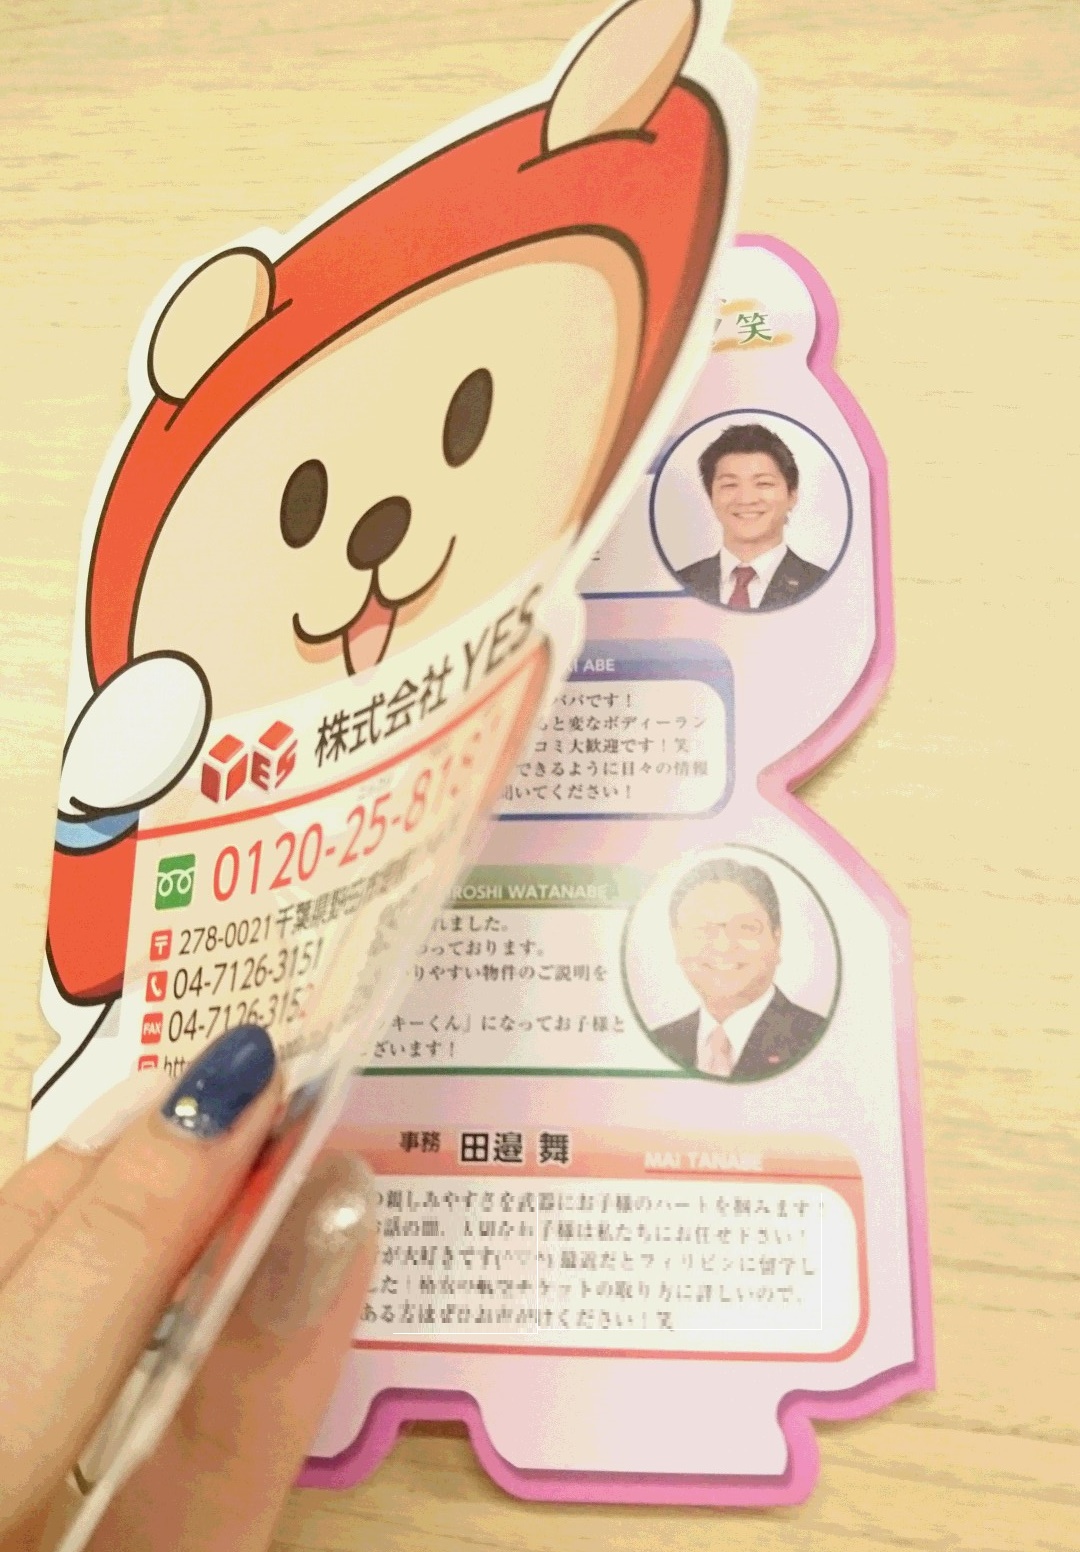 笑
YES 株式会社 YES
0120-25-81
〒 278-0021 千葉県野田
04-7126-3151
FAX 04-7126-315
ABE
パパです！
と変なボディーラン
コミ大歓迎です！笑
できるように日々の情報
聞いてください！
ROSHI WATANABE
れました。
わっております。
りやすい物件のご説明を
キーくん」になってお子様と
ざいます！
事務 田邉 舞 MAI TANABE
親しみやすさを武器にお子様のハートを掴みます！
お話の間、大切なお子様は私たちにお任せ下さい！
が大好きです(^♡^) 最近だとフィリピンに留学し
した！格安の航空チケットの取り方に詳しいので、
ある方はぜひお声がけください！笑